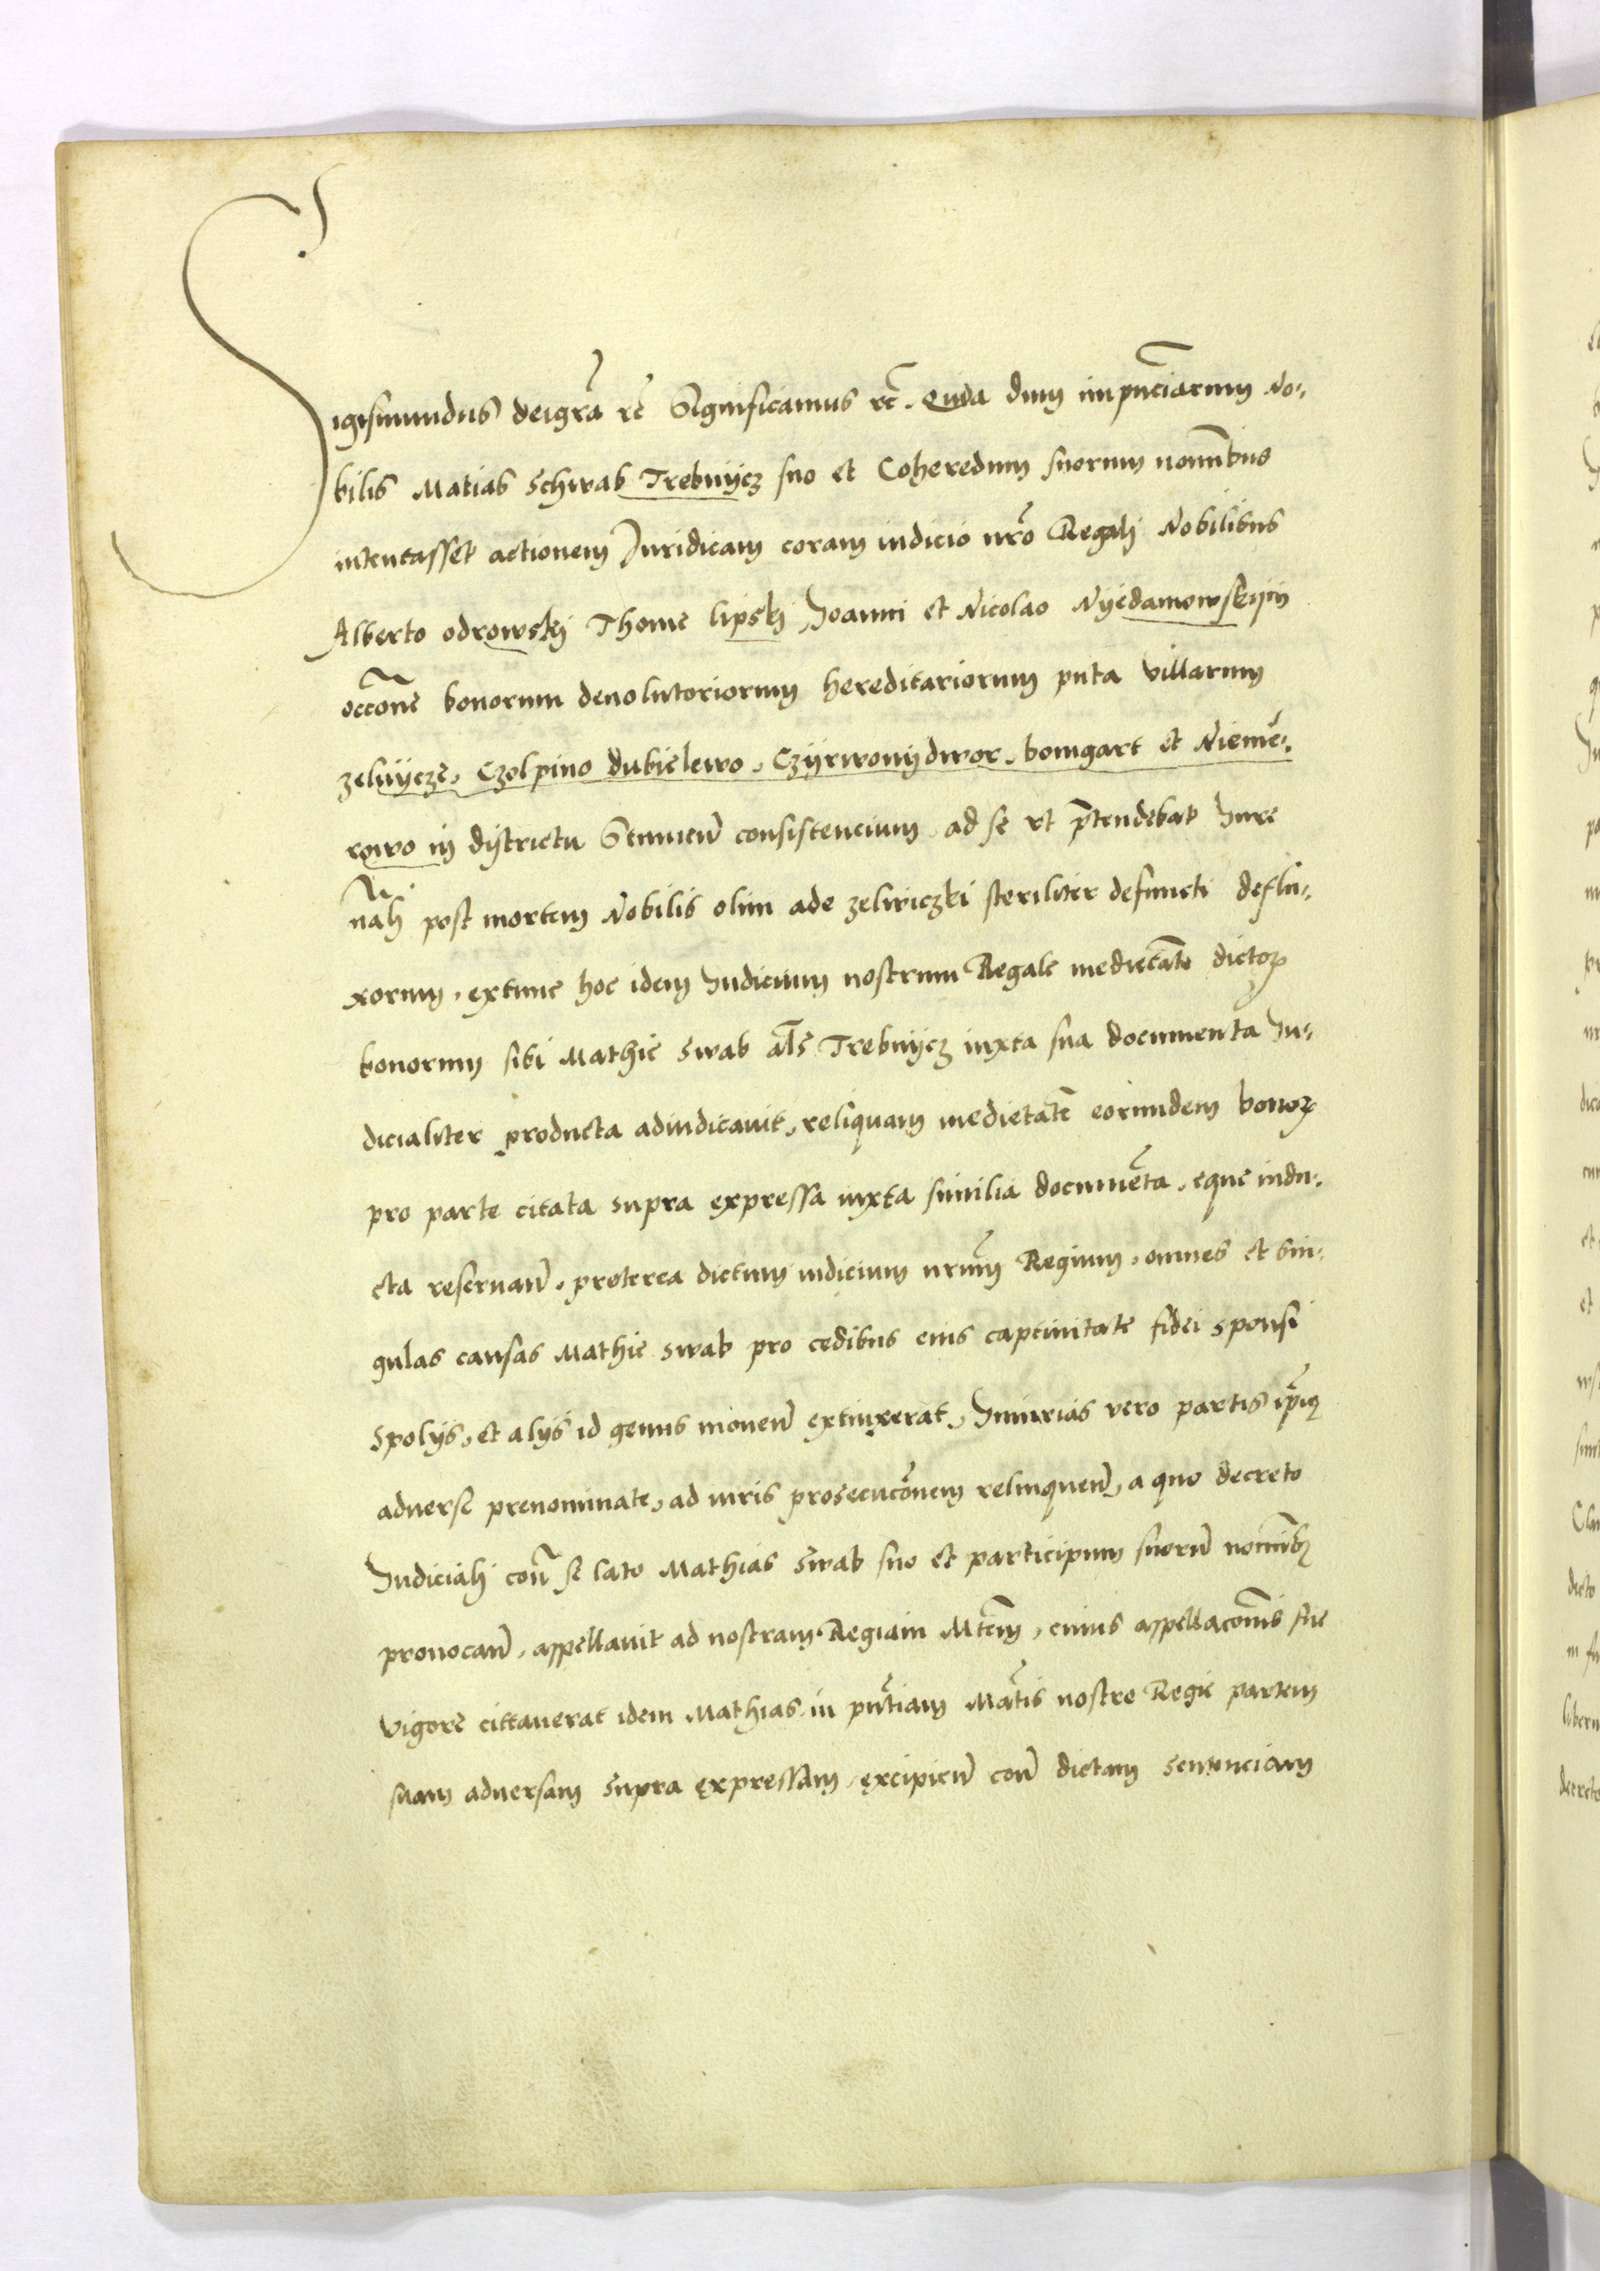 Sigismundus deigrã rc̃ Significamus rc̃. Quia dum impñciarum No-
bilis Matias Schwab Trebnijcz suo et Coheredum suorum noĩnibus
intentasset actionem Juridicam coram iudicio nrõ Regalj Nobilibus
Alberto odrowskj Thome lipskj Joanni et Nicolao Nyedamowskijm
occõne bonorum deuolutoriorum hereditariorum puta villarum
zelnijcze, Czolpino dubielewo, Czyrwonydwor, bomgart et Niemẽ-
rowo in districtu Stumeñ consistencium, ad se vt p̃tendebat Jure
nãli post mortem Nobilis olim ade zelniczki steriliter defuncti deflu-
xorum, extunc hoc idem Judicium nostrum Regale medietãte dictoꝝ
bonorum sibi Mathie Swab al̃s Trebnijcz iuxta sua documenta Ju-
dicialiter producta adiudicauit, reliquam medietatẽ eorundem bonoꝝ
pro parte citata supra expressa iuxta similia documẽta, eque indu-
cta reseruañ, preterea dictum iudicium nrũm Regium, omnes et sin-
gulas causas Mathie Swab pro cedibus eius captiuitate fidei sponsi
spolijs, et alijs id genus moueñ extinxerat, Iniurias vero partis ip̃iꝰ
aduerse prenominate, ad iuris prosecucõnem relinqueñ, a quo decreto
Judiciali coñ se lato Mathias Swab suo et participum suorũ noĩnibꝫ
prouocañ, appellauit ad nostram Regiam Mtẽm, cuius appellacõnis sue
vigore cittauerat idem Mathias in pñtiam Mãtis nostre Regie partem
suam aduersam supra expressam, excipieñ coñ dictam sentenciam